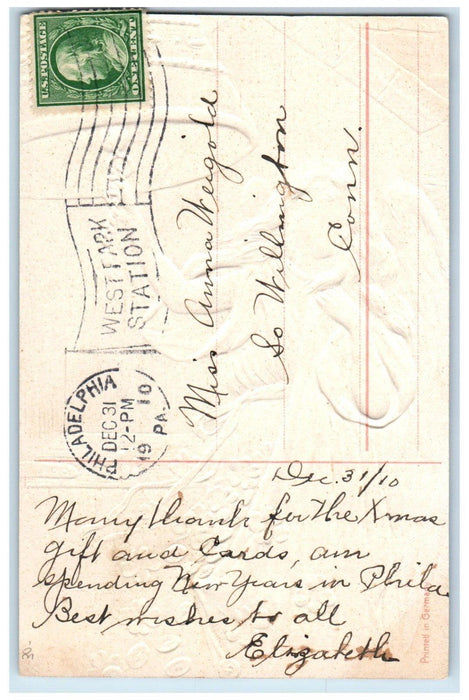 U.S. POSTAGE
ONE CENT
PHILADELPHIA
DEC 31
12-PM
1910
PA.
WEST PARK
STATION
Miss Anna Weigold
So Willington
Conn.
Dec. 31/10
Many thanks for the Xmas
gift and Cards, am
spending New Years in Phila
Best wishes to all
Elizabeth
Printed in Germany